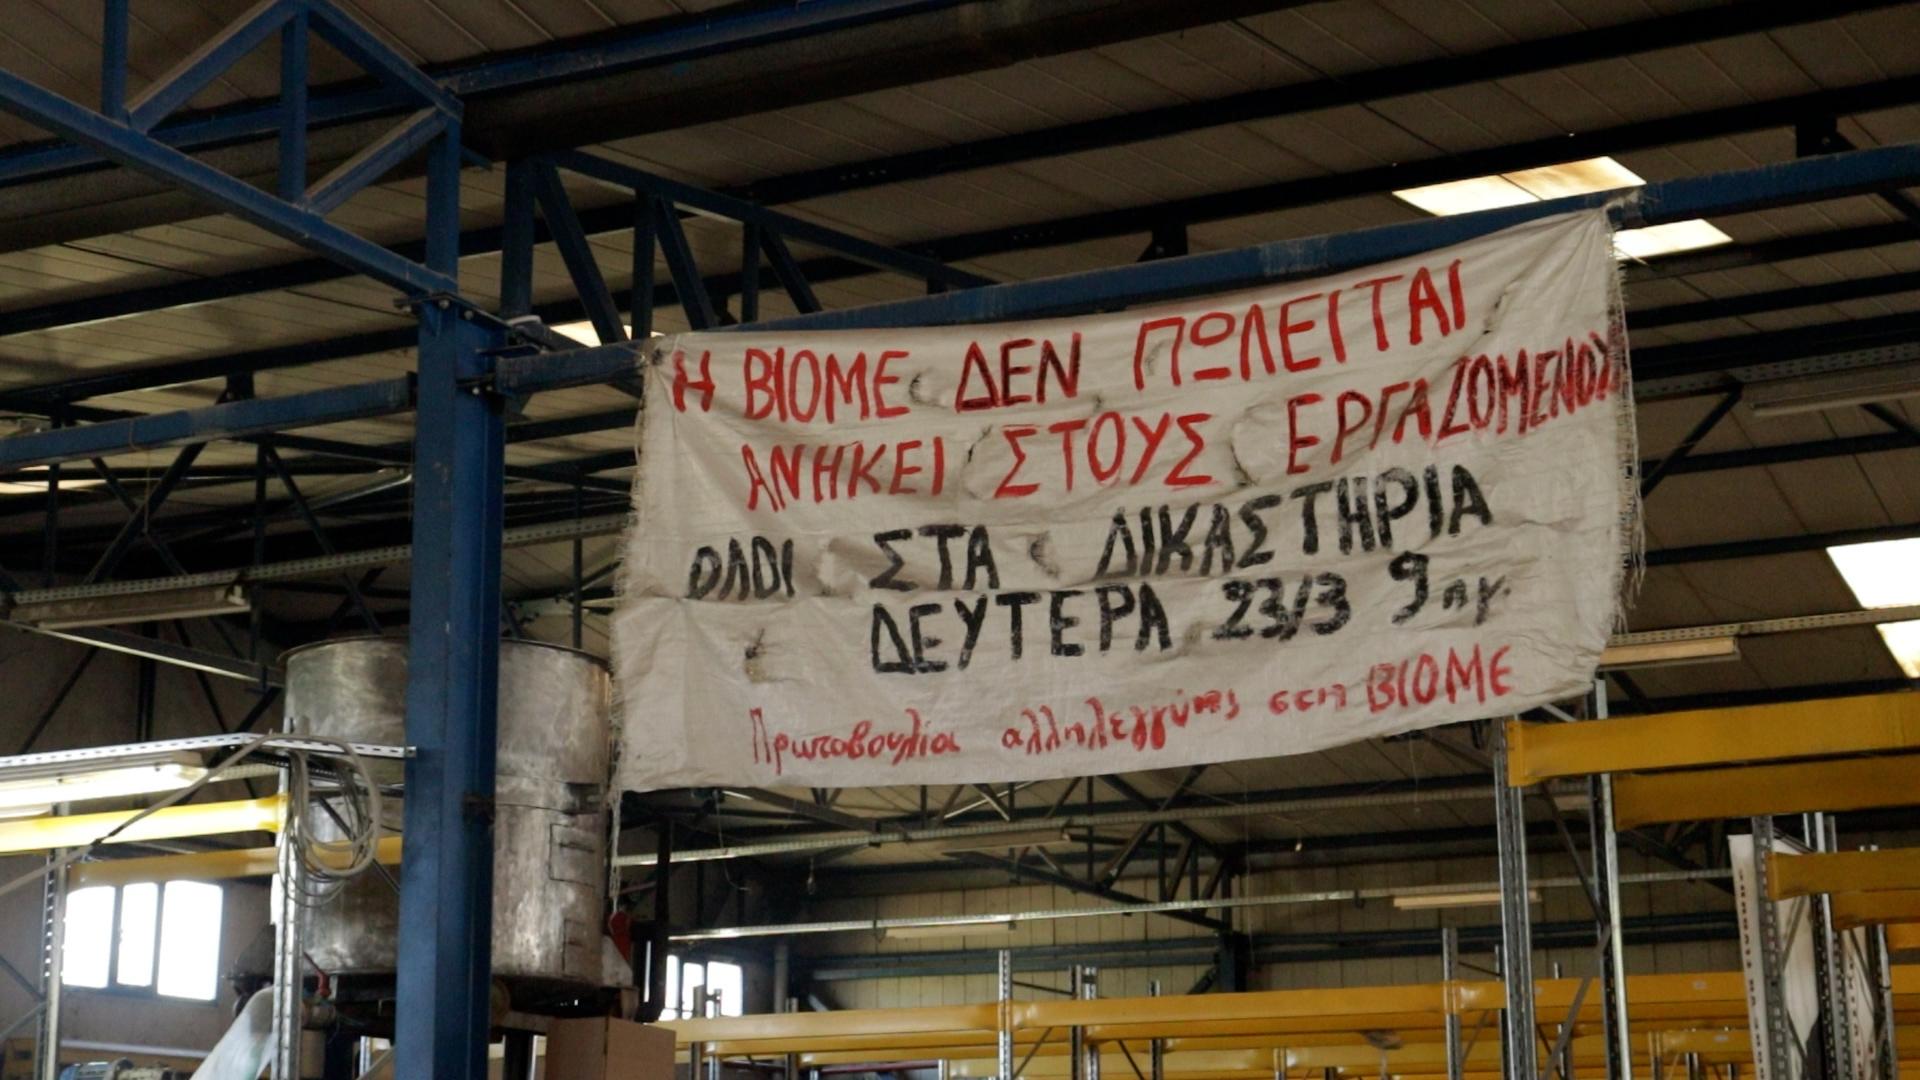 Η ΒΙΟΜΕ ΔΕΝ ΠΩΛΕΙΤΑΙ
ΑΝΗΚΕΙ ΣΤΟΥΣ ΕΡΓΑΖΟΜΕΝΟΥΣ
ΟΛΟΙ ΣΤΑ ΔΙΚΑΣΤΗΡΙΑ
ΔΕΥΤΕΡΑ 23/3 9πμ.
Πρωτοβουλία αλληλεγγύης στη ΒΙΟΜΕ